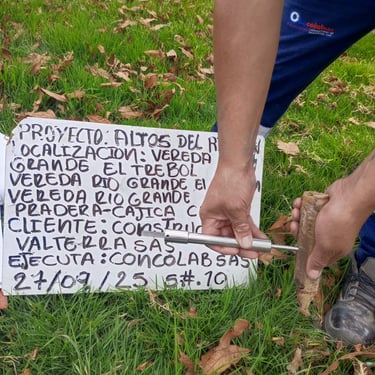 PROYECTO: ALTOS DEL
LOCALIZACION: VEREDA
GRANDE EL TREBOL
VEREDA RIO GRANDE EL
VEREDA RIO GRANDE
PRADERA-CAJICA C
CLIENTE: CONSTRU
VALTERRA SAS
EJECUTA: CONCOLAB SAS
27/09/25 S#.10